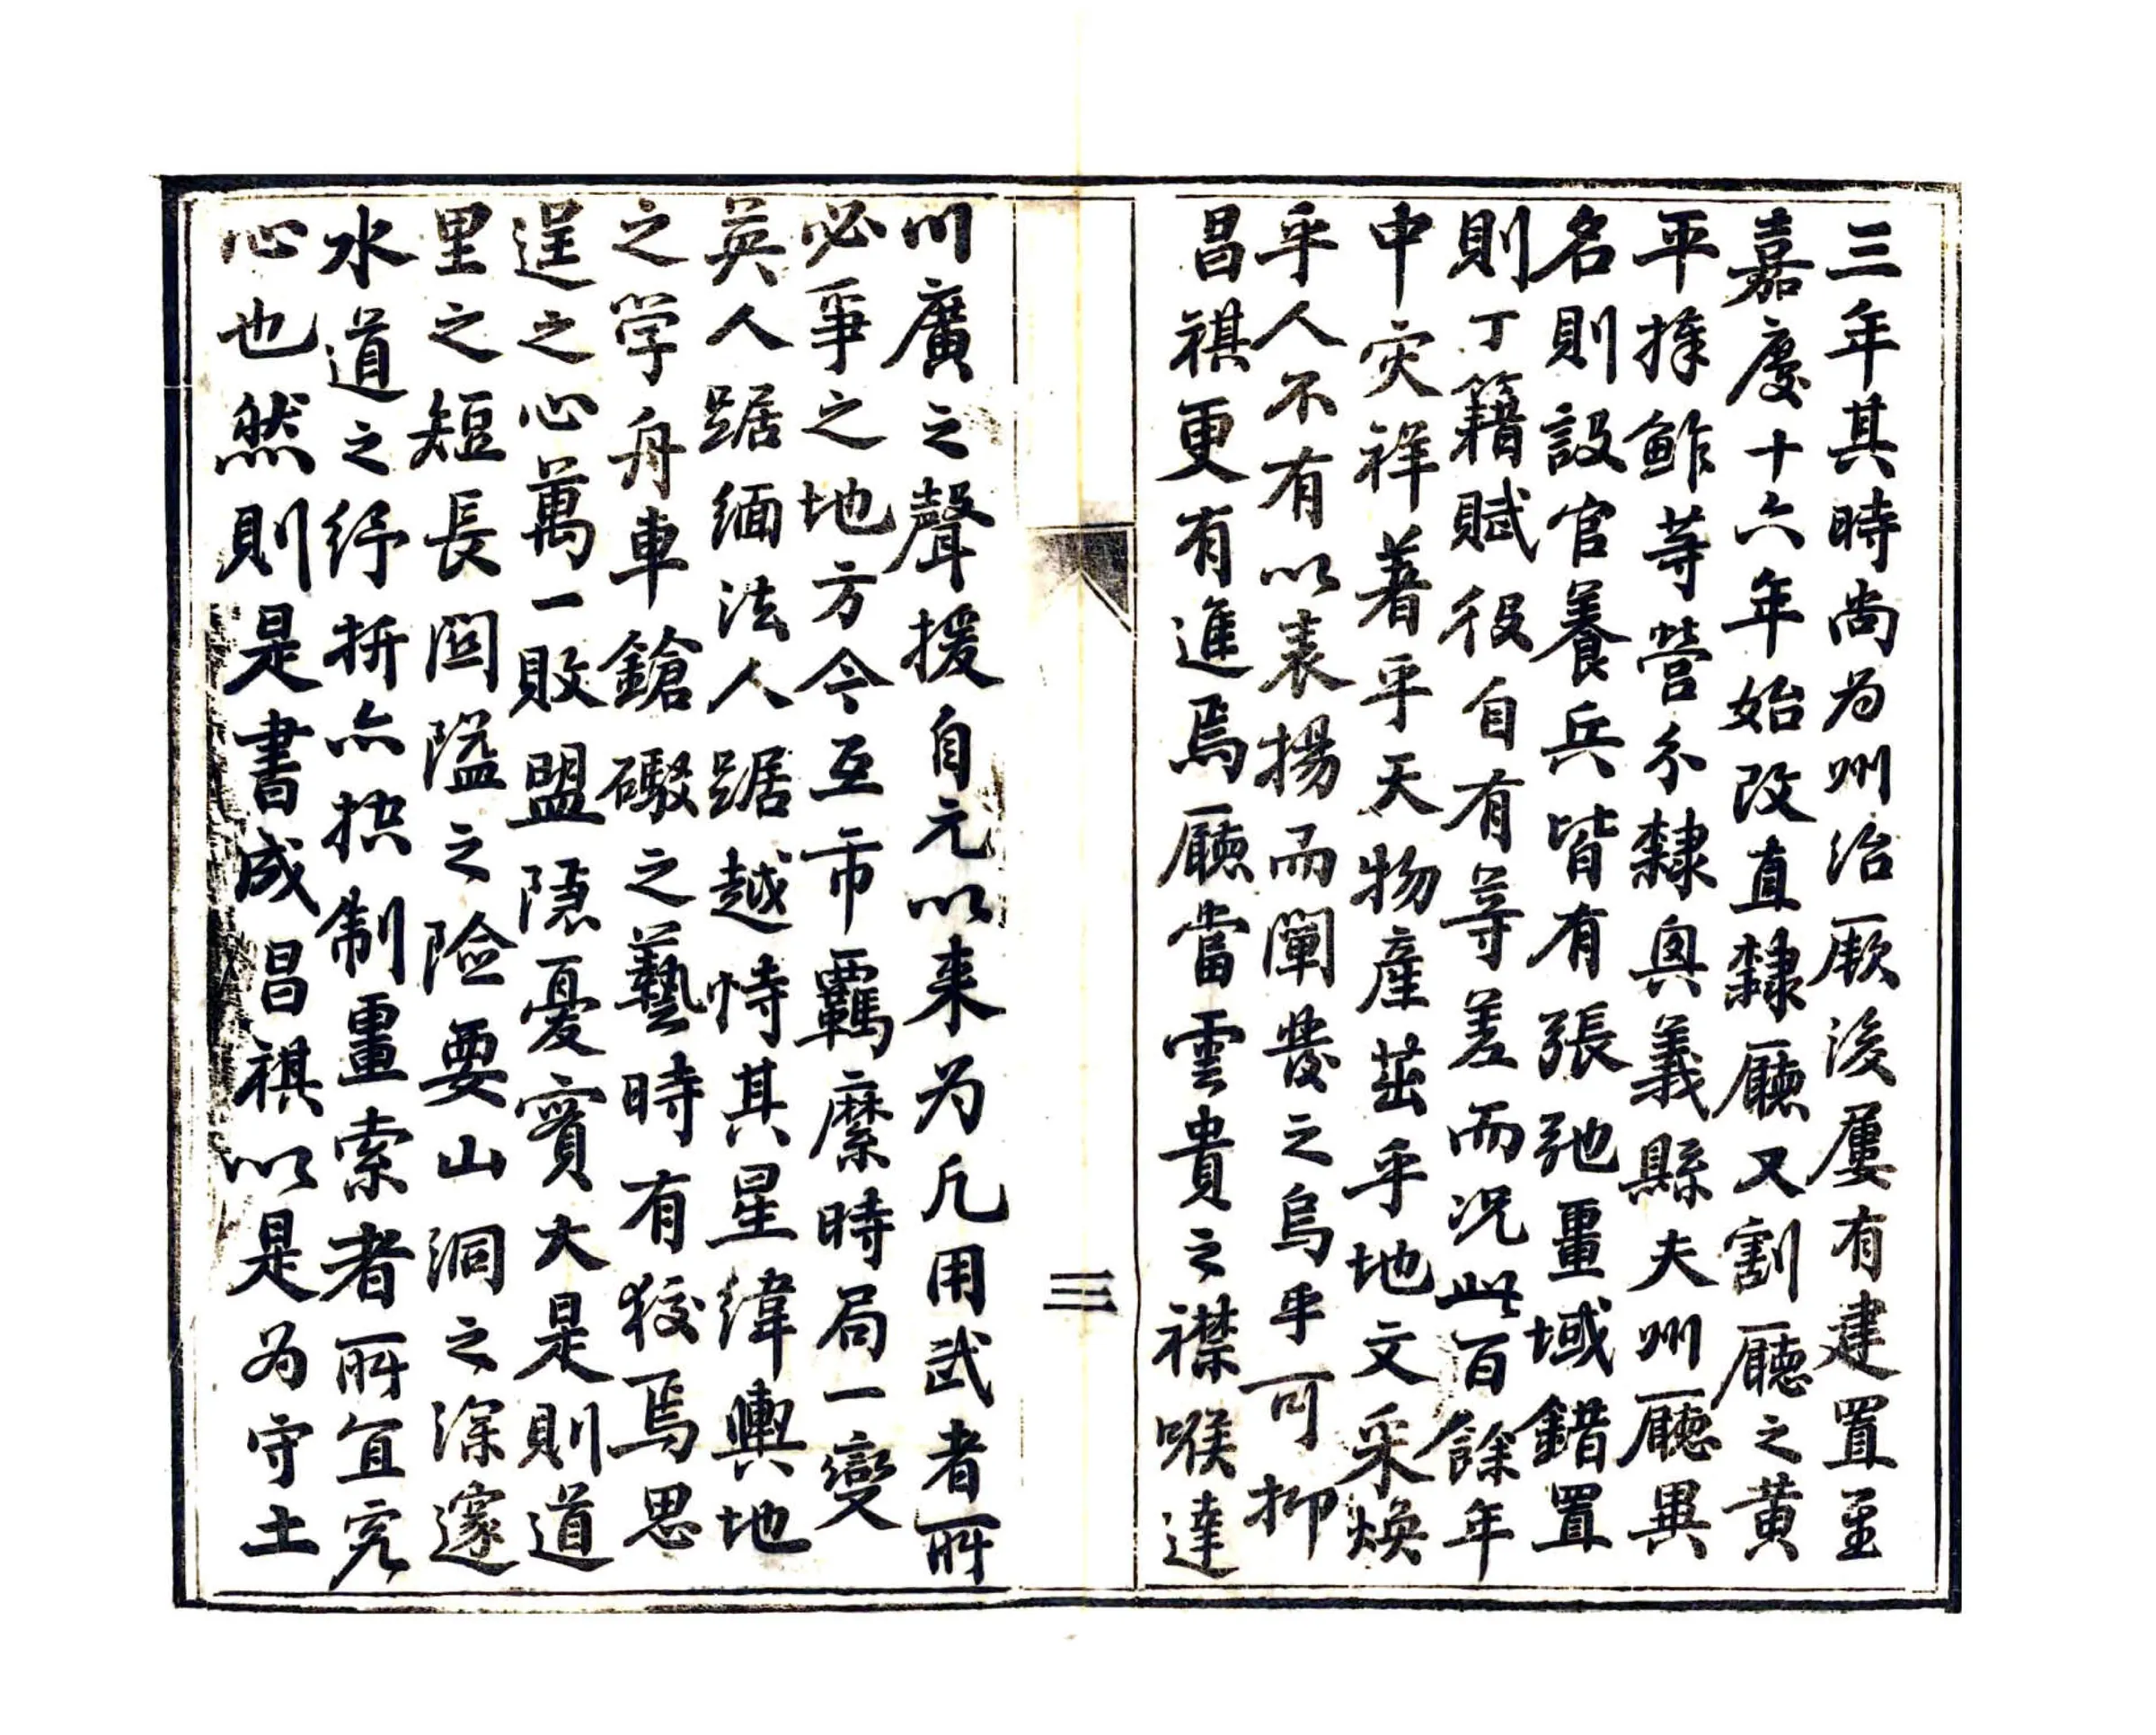 三年其時尚为州治厥後屢有建置至
嘉慶十六年始改直隸廳又割廳之黃
平捧鲊䓁營分隸興義縣夫州廳異
名則設官養兵皆有張弛畺域錯置
則丁籍賦役自有䓁差而况此百餘年
中灾祥著乎天物產茁乎地文采焕
乎人不有以表揚而闡發之烏乎可抑
昌祺更有進焉廳當雲貴之襟喉達
三
川廣之聲援自元以来为凡用武者所
必爭之地方今互市羈縻時局一變
英人踞缅法人踞越恃其星緯輿地
之学舟車鎗礮之藝時有狡焉思
逞之心萬一敗盟隱憂實大是則道
里之短長関隘之險要山洞之深邃
水道之紆折亦控制畺索者所宜究
心也然則是書成昌祺以是为守土